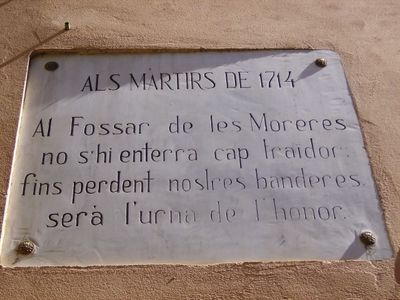 ALS MÀRTIRS DE 1714
Al Fossar de les Moreres
no s'hi enterra cap traïdor:
fins perdent nostres banderes
serà l'urna de l'honor.